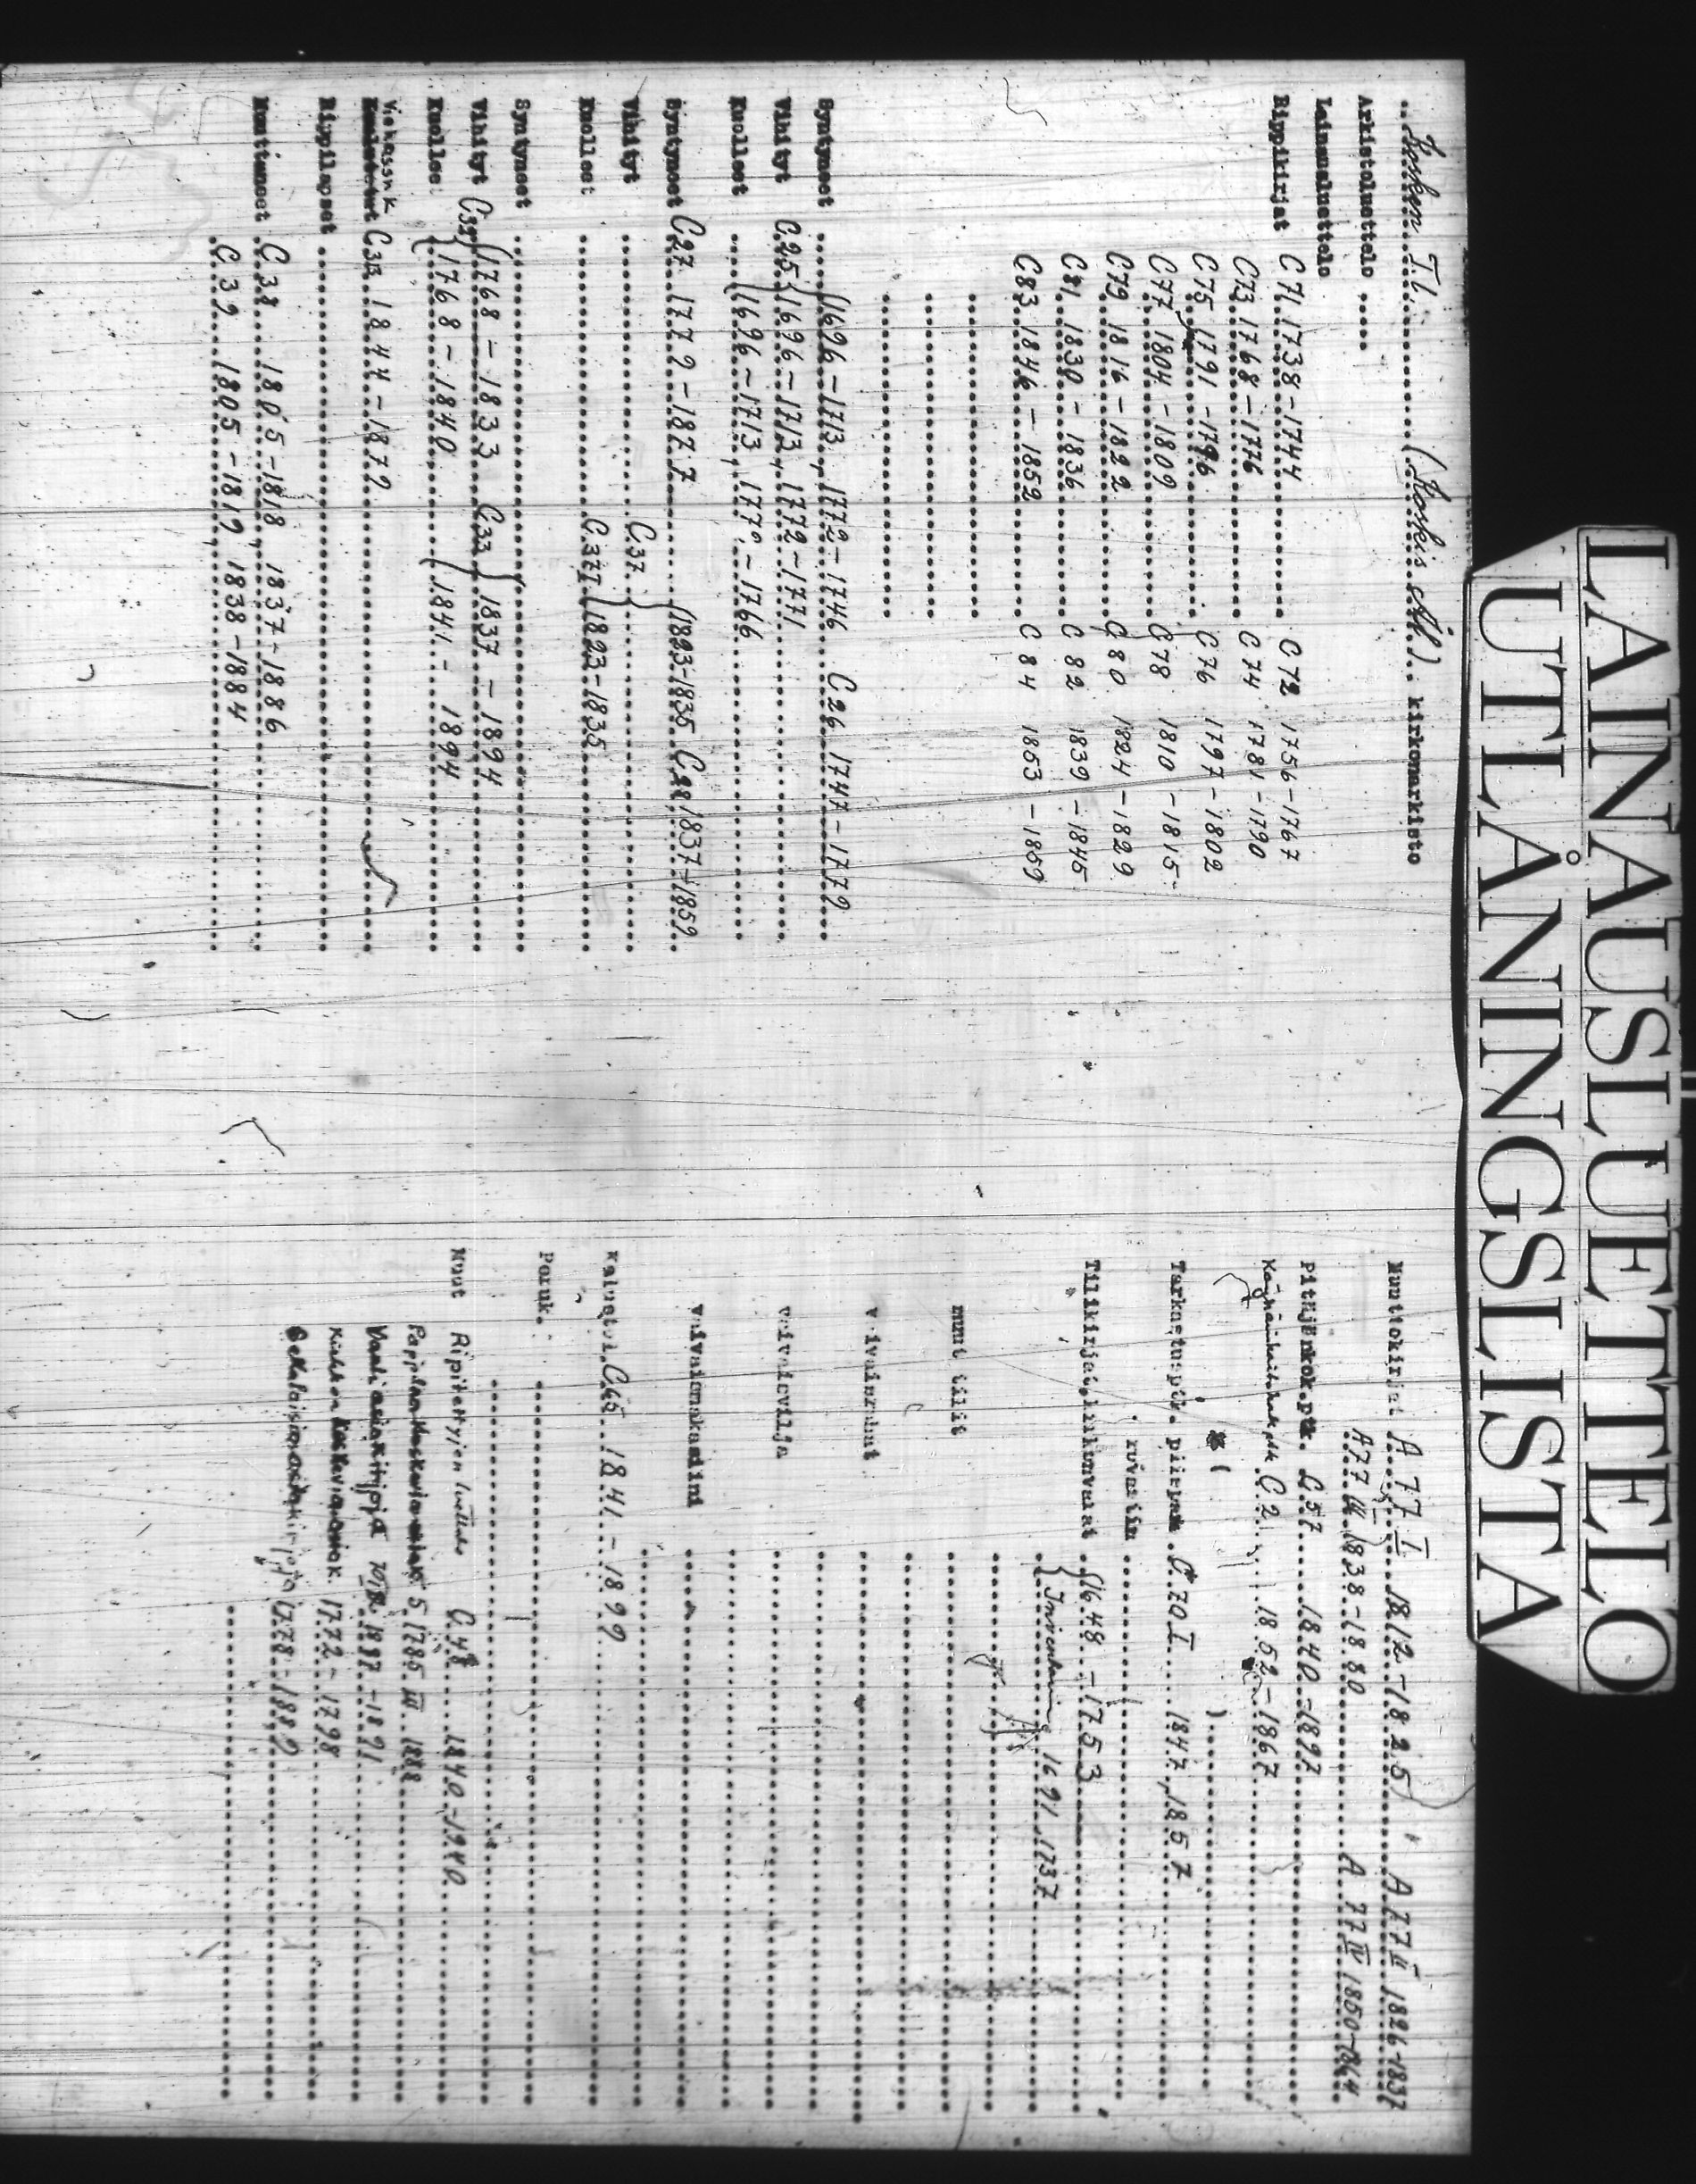 LAINAUSLUETTELO
UTLÅNINGSLISTA
Kosken Tl. (Koskis Åbl) kirkonarkisto
Arkistoluettelo
Lainausluettelo
Rippikirjat C 71 1738-1744 C 72 1756-1767
C 73 1768-1776 C 74 1781-1790
C 75 1791-1796 C 76 1797-1802
C 77 1804-1809 C 78 1810-1815
C 79 1816-1822 C 80 1824-1829
C 81 1830-1836 C 82 1839-1845
C 83 1846-1852 C 84 1853-1859
Syntyneet 1696-1713, 1772-1746 C 26 1747-1779
Vihityt C 25 1696-1713, 1772-1771
Kuolleet 1696-1713, 1772-1766
Syntyneet C 27 1779-1877 1823-1835 C 28 1837-1859
Vihityt C 37
Kuolleet C 37 I 1823-1835
Syntyneet
Vihityt C 32 1768-1833 C 33 1837-1894
Kuolleet 1768-1840 1841-1894
C 38 1844-1872
Rippilapset
Muuttaneet C 38 1805-1818, 1837-1886
C 39 1805-1819, 1838-1884
Muuttokirjat A 77 I 1812-1825 A 77 II 1826-1837
A 77 III 1838-1880 A 77 IV 1850-1864
Pitäjänkok.ptk. C 57 1840-1897
C 2 1852-1867
( )
Tarkastusptk. piispan C 70 I 1847, 1857
rovastin
Tilikirjat, kirkonvarat 1648-1753
Inventarium 1691-1737
muut tilit
vaivaisrahat
vaivaisvilja
vaivaismakasiini
Kaluetel. C 66 1841-1899
Peruk.
Muut Ripitettyjen luettelo C 48 1840-1940
Pappilan koskevia 5 1785 III 1888
Vaali asiakirjoja 1887-1891
Kirkkoa koskevia asiak. 1772-1798
Sekalaisia asiakirjoja 1778-1882